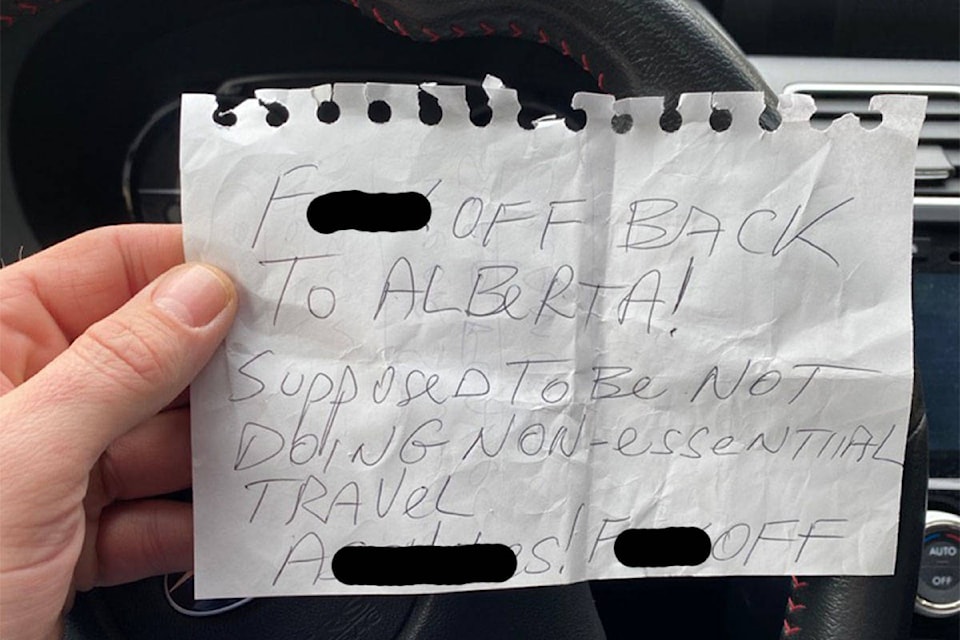 F OFF BACK
TO ALBERTA!
SUPPOSED TO BE NOT
DOING NON-ESSENTIAL
TRAVEL
AS es! F OFF
AUTO
OFF